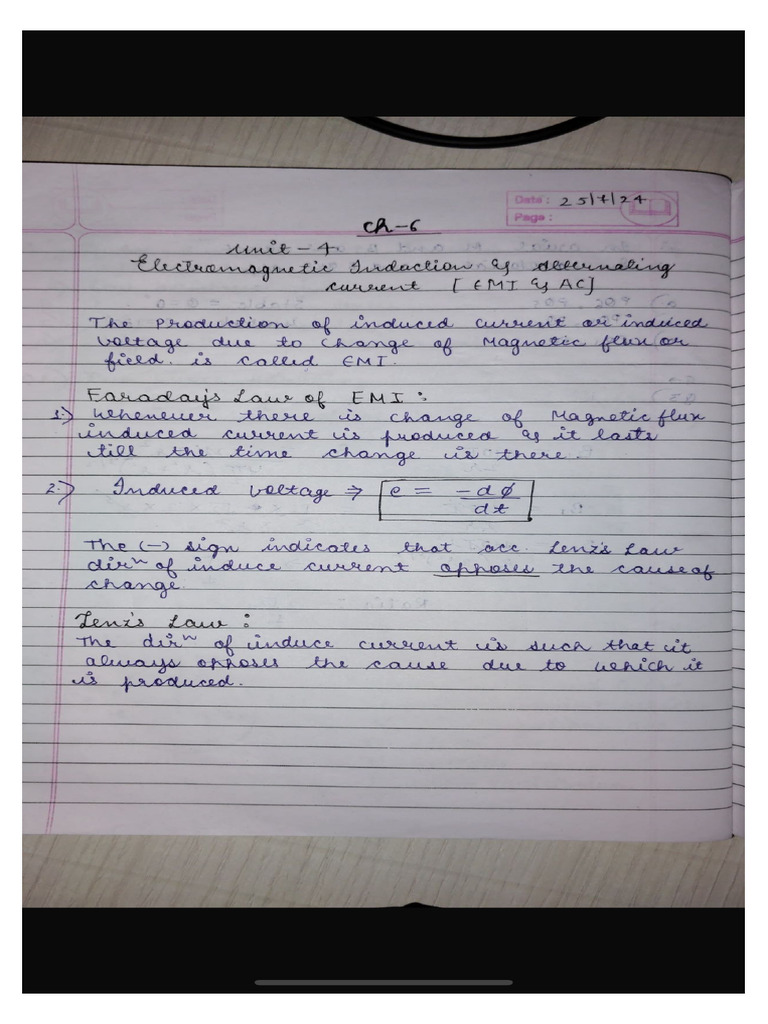 Date : 25/7/24
Page :
Ch-6
Unit - 4
Electromagnetic Induction & Alternating
current [EMI & AC]
The Production of induced current or induced
voltage due to change of Magnetic flux or
field. is called EMI.
Faraday's Law of EMI :
1.) Whenever there is change of Magnetic flux
induced current is produced & it lasts
till the time change is there.
2.) Induced voltage ⇒ e = -dφ
dt
The (-) sign indicates that acc. Lenz's Law
dirⁿ of induce current opposes the cause of
change.
Lenz's Law :
The dirⁿ of induce current is such that it
always opposes the cause due to which it
is produced.